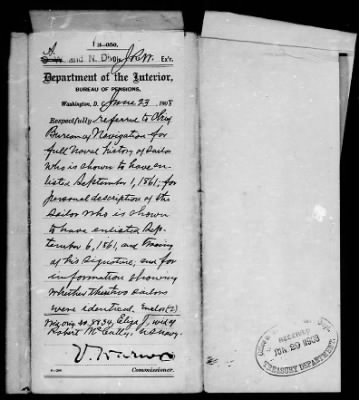 3—050.
and N. Div. J.S.W. Ex'r.
Department of the Interior,
BUREAU OF PENSIONS,
Washington, D. C., June 23, 1908
Respectfully referred to Chief
Bureau of Navigation for
full naval history of sailor
who is shown to have en-
listed September 1, 1861; for
personal description of the
sailor who is shown
to have enlisted Sep-
tember 6, 1861, and tracing
of his signature; and for
information showing
whether these two sailors
were identical. Enclos (2)
Wid. orig. 8834, Eliza J., wid of
Robert McCully, U.S. Navy.
V. Warner
Commissioner.
RECEIVED
JUN 29 1908
TREASURY DEPARTMENT